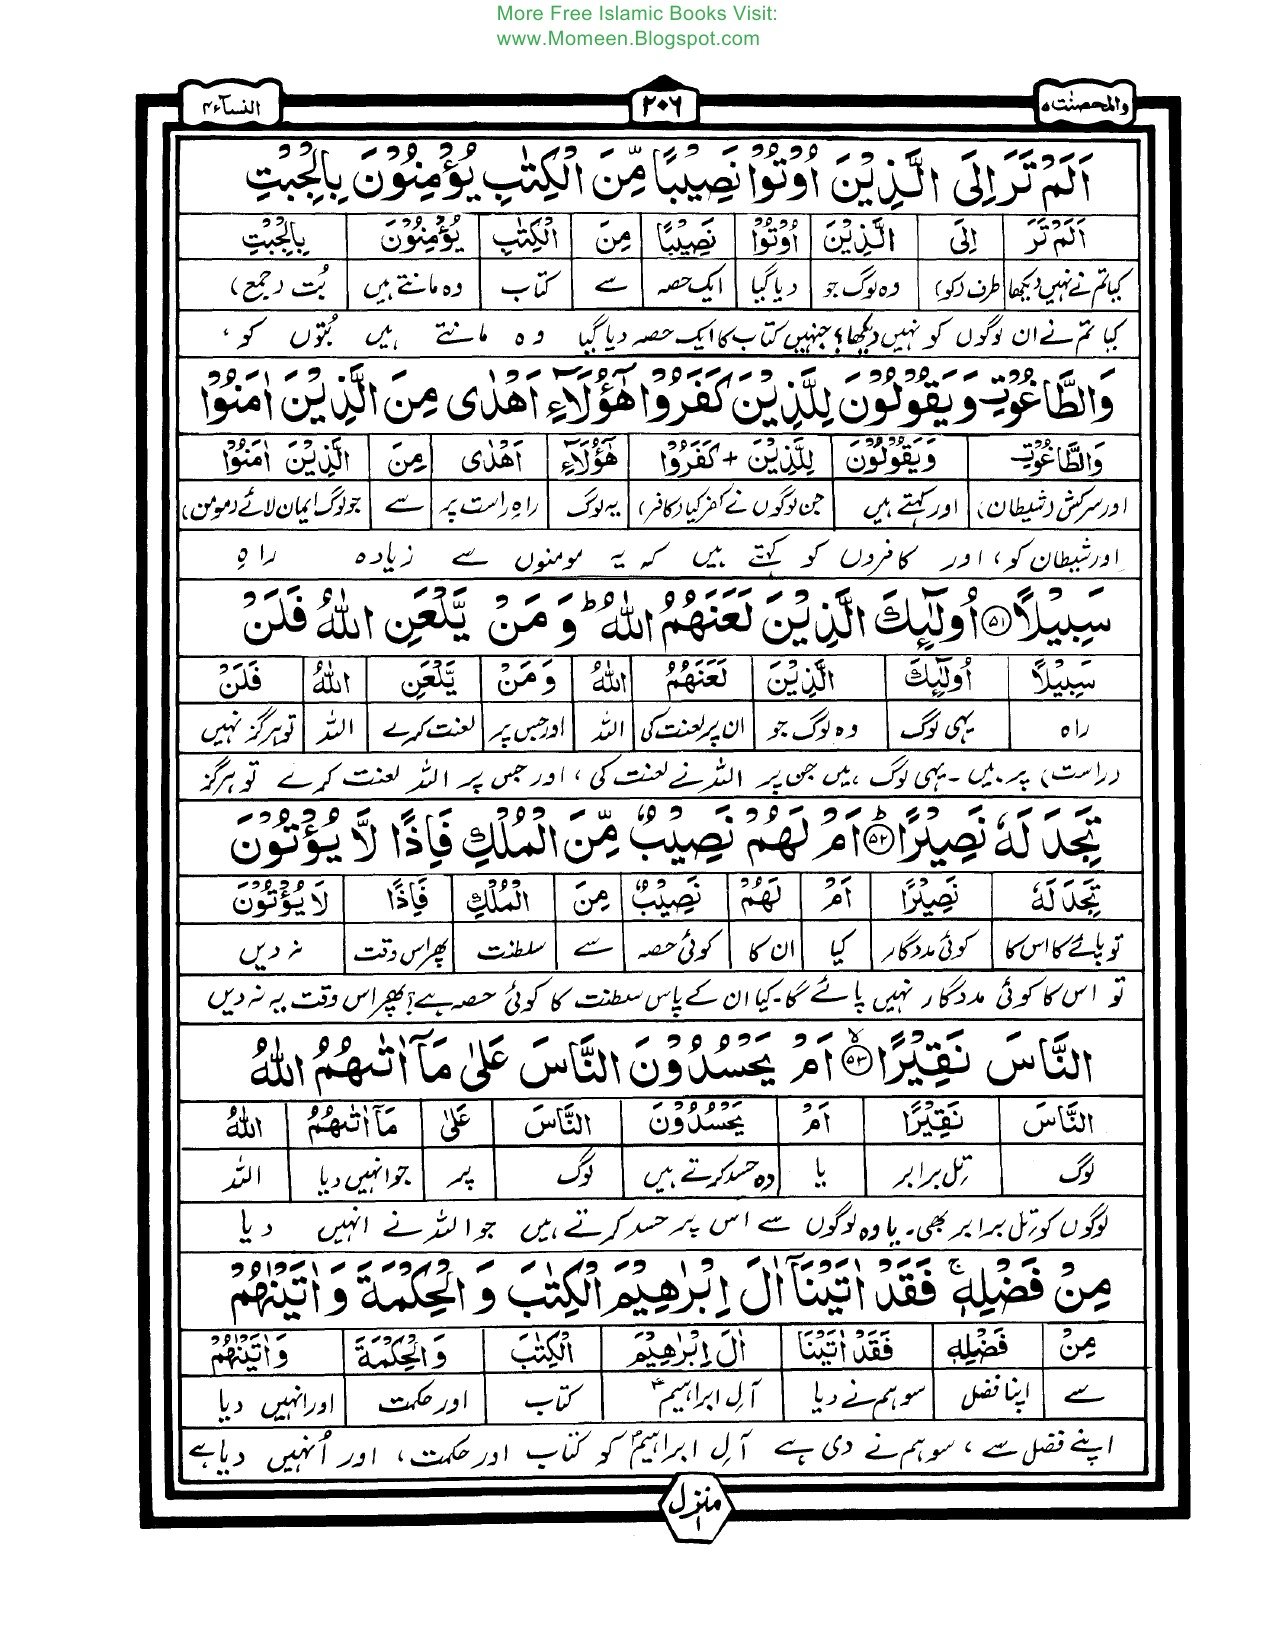 More Free Islamic Books Visit:
www.Momeen.Blogspot.com
والمحصنٰت ۵ ۲۰۶ النسآء ۴
اَلَمْ تَرَ اِلَى الَّذِيْنَ اُوْتُوْا نَصِيْبًا مِّنَ الْكِتٰبِ يُؤْمِنُوْنَ بِالْجِبْتِ
اَلَمْ تَرَ اِلَى الَّذِيْنَ اُوْتُوْا نَصِيْبًا مِنَ الْكِتٰبِ يُؤْمِنُوْنَ بِالْجِبْتِ
کیا تم نے نہیں دیکھا طرف (کو) وہ لوگ جو دیا گیا ایک حصہ سے کتاب وہ مانتے ہیں بُت (جمع)
کیا تم نے ان لوگوں کو نہیں دیکھا؟ جنہیں کتاب کا ایک حصہ دیا گیا وہ مانتے ہیں بُتوں کو،
وَالطَّاغُوْتِ وَيَقُوْلُوْنَ لِلَّذِيْنَ كَفَرُوْا هٰٓؤُلَآءِ اَهْدٰى مِنَ الَّذِيْنَ اٰمَنُوْا
وَالطَّاغُوْتِ وَيَقُوْلُوْنَ لِلَّذِيْنَ + كَفَرُوْا هٰٓؤُلَآءِ اَهْدٰى مِنَ الَّذِيْنَ اٰمَنُوْا
اور سرکش (شیطان) اور کہتے ہیں جن لوگوں نے کفر کیا (کافر) یہ لوگ راہِ راست پر سے جو لوگ ایمان لائے (مومن)
اور شیطان کو، اور کافروں کو کہتے ہیں کہ یہ مومنوں سے زیادہ راہِ
سَبِيْلًا ۵۱ اُولٰٓئِكَ الَّذِيْنَ لَعَنَهُمُ اللّٰهُ ؕ وَمَنْ يَّلْعَنِ اللّٰهُ فَلَنْ
سَبِيْلًا اُولٰٓئِكَ الَّذِيْنَ لَعَنَهُمُ اللّٰهُ وَمَنْ يَّلْعَنِ اللّٰهُ فَلَنْ
راہ یہی لوگ وہ لوگ جو ان پر لعنت کی اللہ اور جس پر لعنت کرے اللہ تو ہرگز نہیں
(راست) پر ہیں۔ یہی لوگ ہیں جن پر اللہ نے لعنت کی، اور جس پر اللہ لعنت کرے تو ہرگز
تَجِدَ لَهٗ نَصِيْرًا ؕ ۵۲ اَمْ لَهُمْ نَصِيْبٌ مِّنَ الْمُلْكِ فَاِذًا لَّا يُؤْتُوْنَ
تَجِدَ لَهٗ نَصِيْرًا اَمْ لَهُمْ نَصِيْبٌ مِنَ الْمُلْكِ فَاِذًا لَا يُؤْتُوْنَ
تو پائے گا اس کا کوئی مددگار کیا ان کا کوئی حصہ سے سلطنت پھر اس وقت نہ دیں
تو اس کا کوئی مددگار نہیں پائے گا۔ کیا ان کے پاس سلطنت کا کوئی حصہ ہے؟ پھر اس وقت یہ نہ دیں
النَّاسَ نَقِيْرًا ۙ ۵۳ اَمْ يَحْسُدُوْنَ النَّاسَ عَلٰى مَآ اٰتٰىهُمُ اللّٰهُ
النَّاسَ نَقِيْرًا اَمْ يَحْسُدُوْنَ النَّاسَ عَلٰى مَآ اٰتٰىهُمُ اللّٰهُ
لوگ تِل برابر یا وہ حسد کرتے ہیں لوگ پر جو انہیں دیا اللہ
لوگوں کو تِل برابر بھی۔ یا وہ لوگوں سے اس پر حسد کرتے ہیں جو اللہ نے انہیں دیا
مِنْ فَضْلِهٖ ۚ فَقَدْ اٰتَيْنَآ اٰلَ اِبْرٰهِيْمَ الْكِتٰبَ وَ الْحِكْمَةَ وَ اٰتَيْنٰهُمْ
مِنْ فَضْلِهٖ فَقَدْ اٰتَيْنَا اٰلَ اِبْرٰهِيْمَ الْكِتٰبَ وَ الْحِكْمَةَ وَاٰتَيْنٰهُمْ
سے اپنا فضل سو ہم نے دیا آلِ ابراہیمؑ کتاب اور حکمت اور انہیں دیا
اپنے فضل سے، سو ہم نے دی ہے آلِ ابراہیمؑ کو کتاب اور حکمت، اور اُنہیں دیا ہے
منزل ۱